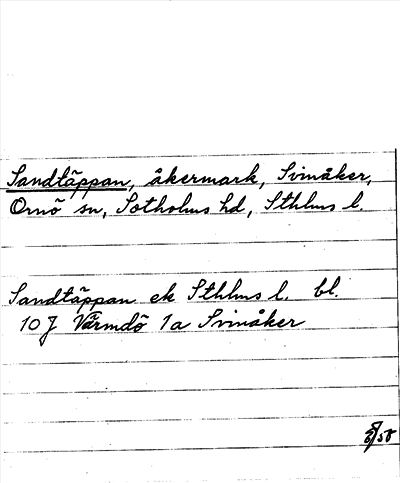 Sandtäppan, åkermark, Svinåker,
Ornö sn, Sotholms hd, Sthlms l.
Sandtäppan ek Sthlms l. bl.
10 J Värmdö 1a Svinåker